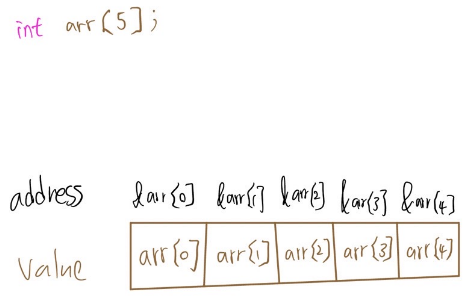 int arr[5];
address &arr[0] &arr[1] &arr[2] &arr[3] &arr[4]
value arr[0] arr[1] arr[2] arr[3] arr[4]